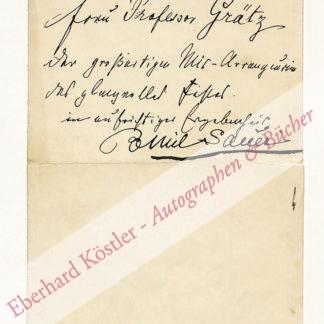 Frau Professor Grätz
der großartigen Mit-Arrangeurin
des glanzvollen Festes.
in aufrichtiger Ergebenheit
Emil Sauer
Eberhard Köstler - Autographen & Bücher